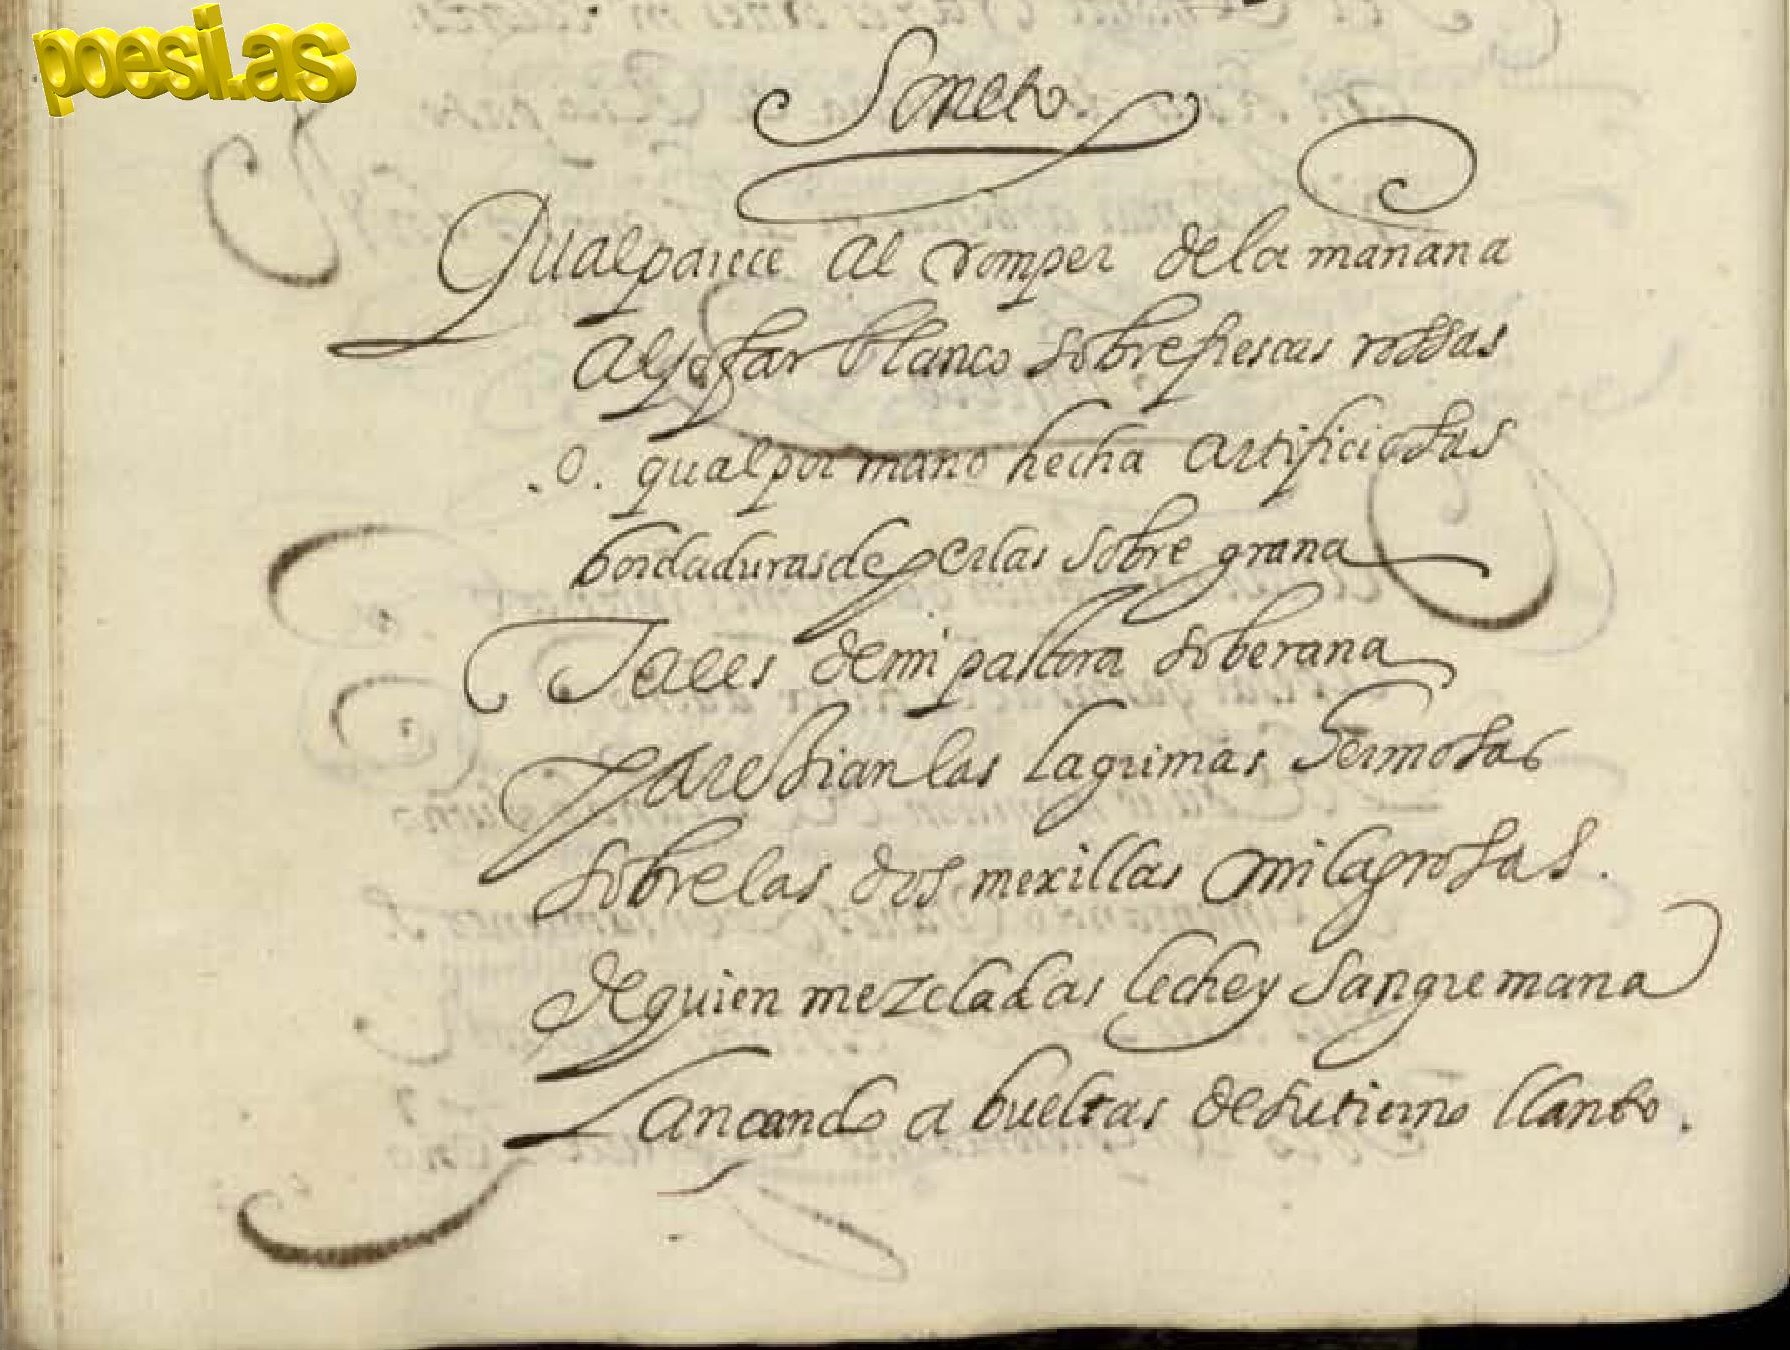 poesi.as
Soneto
Qual parece al romper de la mañana
aljofar blanco sobre frescas rossas
.o. qual por mano hecha artificiosas
bordaduras de perlas sobre grana
Tales de mi pastora soberana
parescian las lagrimas hermosas
sobre las dos mexillas milagrosas.
de quien mezcladas leche y sangre mana
Lançando a bueltas de su tierno llanto.